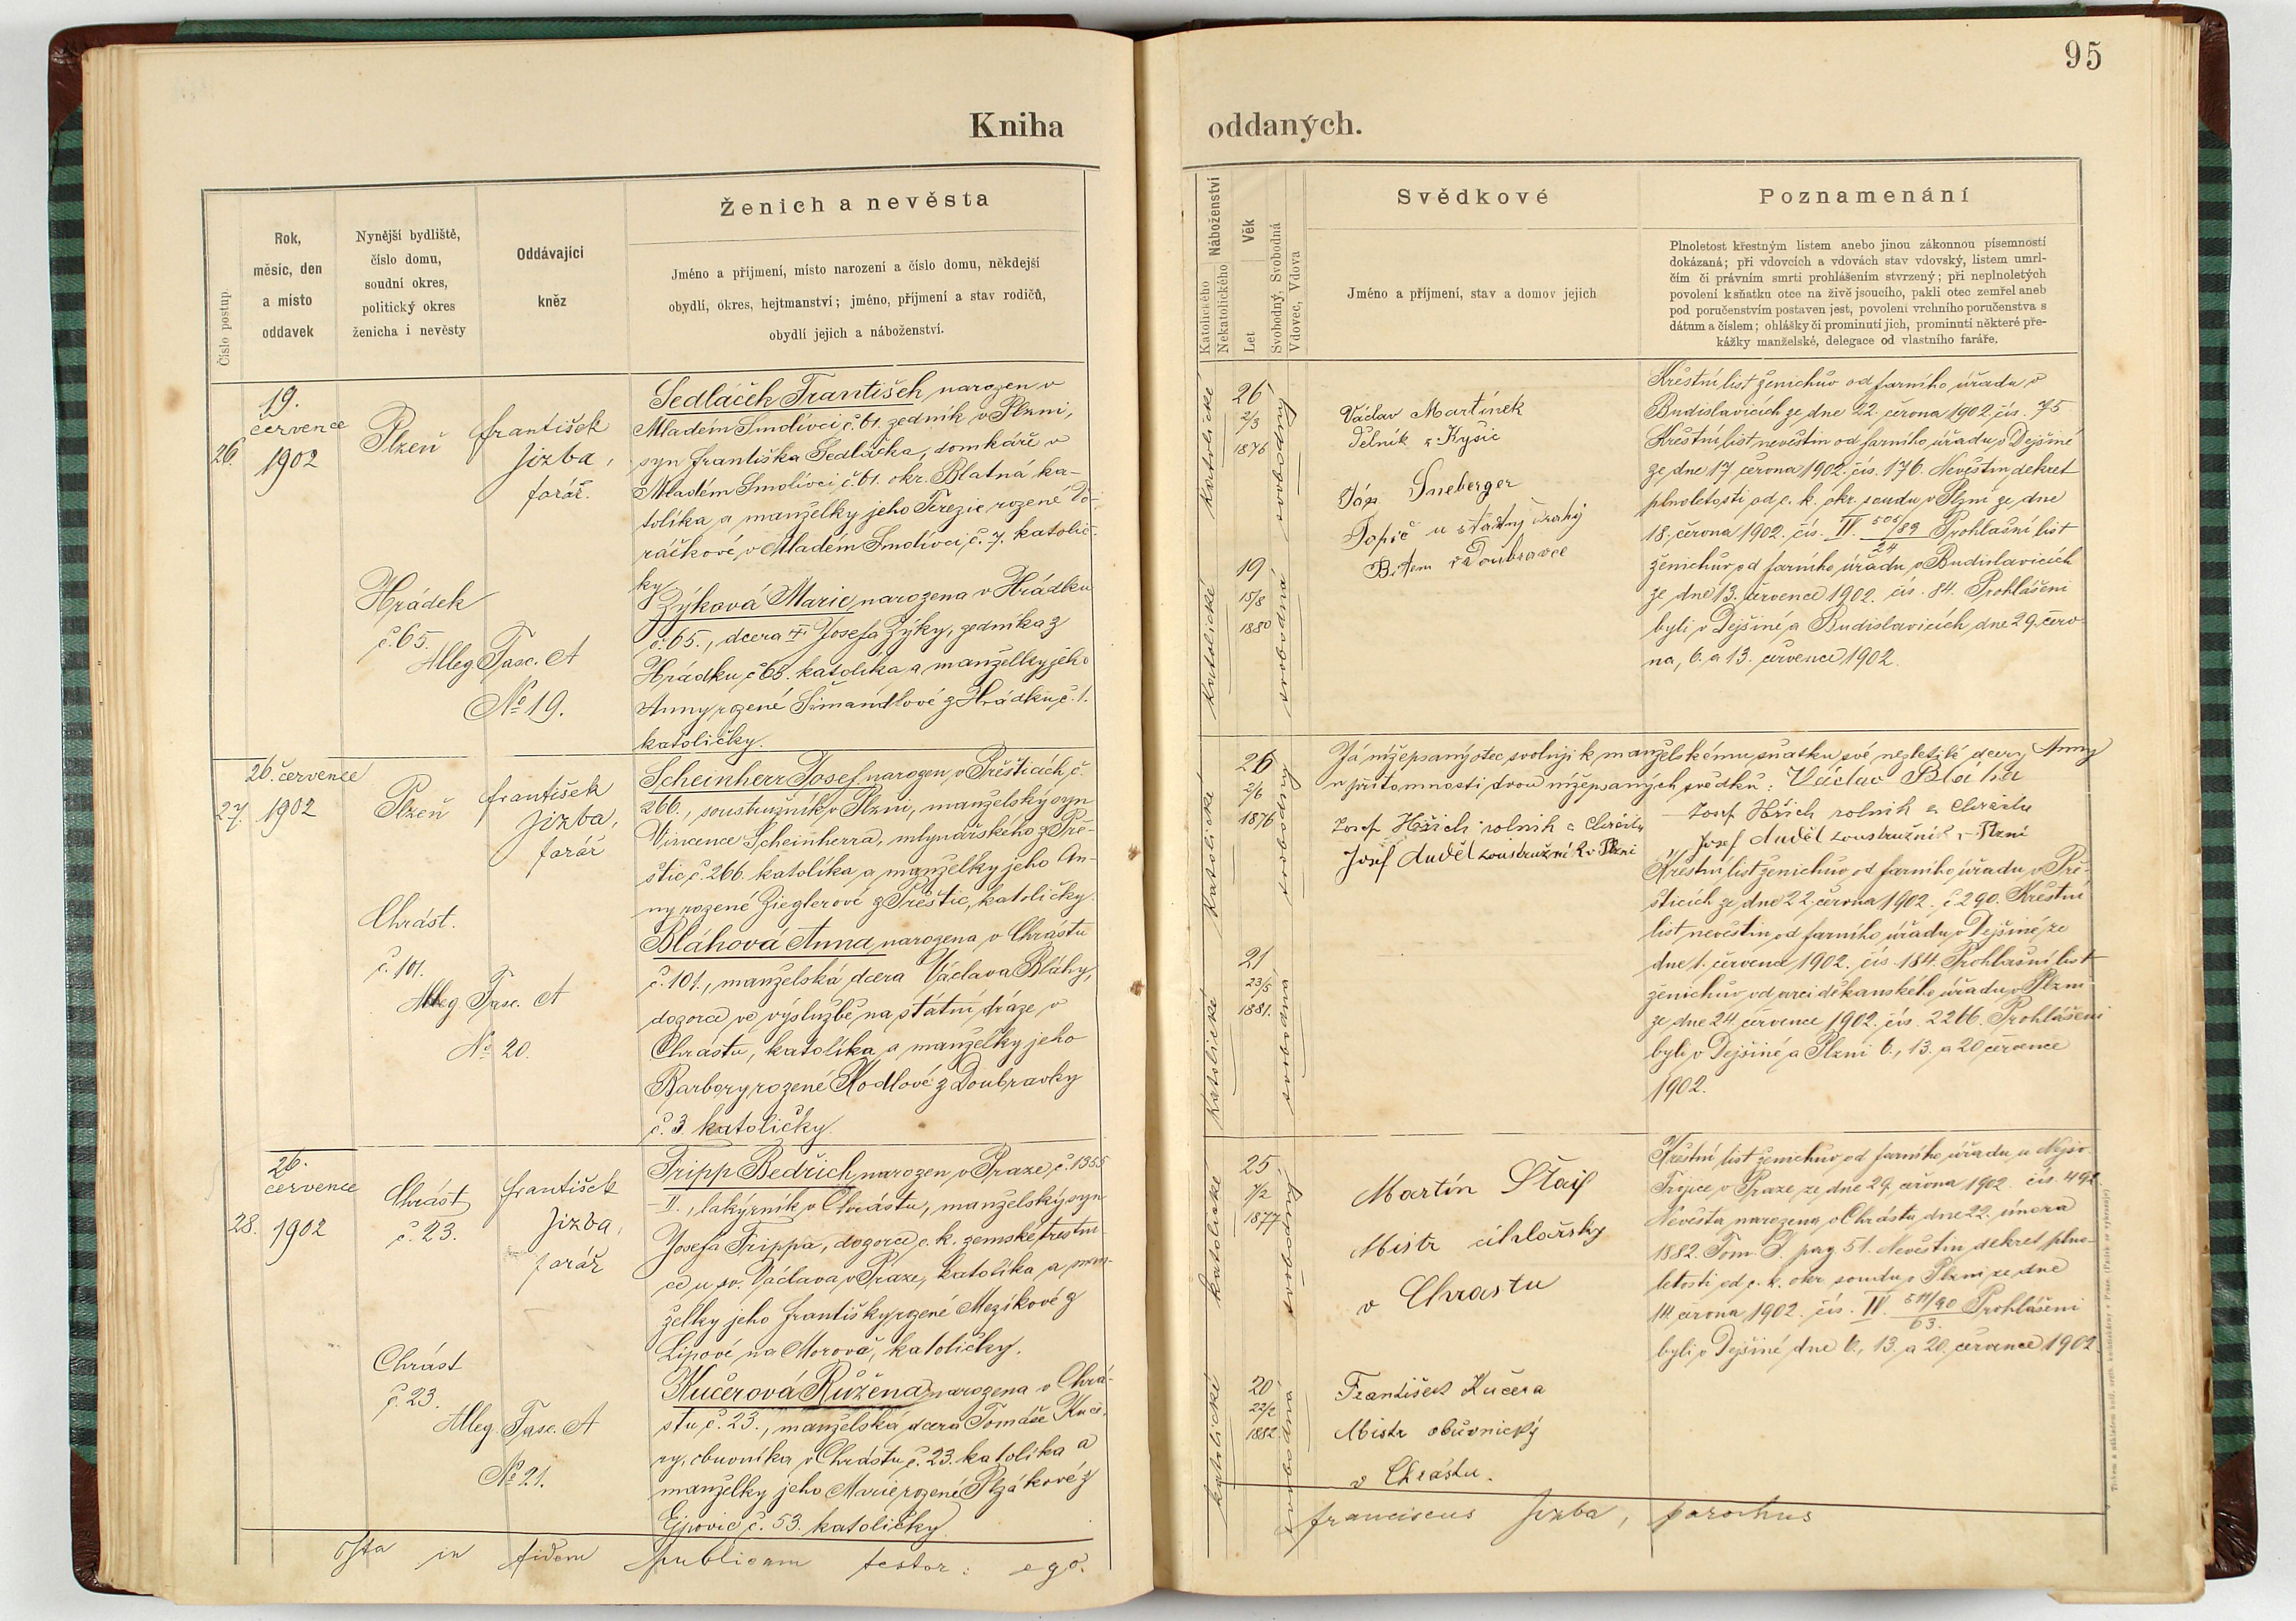 95
Kniha oddaných.
Číslo postup.
Rok,
měsíc, den
a místo
oddavek
Nynější bydliště,
číslo domu,
soudní okres,
politický okres
ženicha i nevěsty
Oddávající
kněz
Ženich a nevěsta
Jméno a příjmení, místo narození a číslo domu, někdejší
obydlí, okres, hejtmanství; jméno, příjmení a stav rodičů,
obydlí jejich a náboženství.
Náboženství
Katolického
Nekatolického
Věk
Let
Svobodný, Svobodná
Vdovec, Vdova
Svědkové
Jméno a příjmení, stav a domov jejich
Poznamenání
Plnoletost křestným listem anebo jinou zákonnou písemností
dokázaná; při vdovcích a vdovách stav vdovský, listem umrl-
čím či právním smrti prohlášením stvrzený; při neplnoletých
povolení k sňatku otce na živě jsoucího, pakli otec zemřel aneb
pod poručenstvím postaven jest, povolení vrchního poručenstva s
dátum a číslem; ohlášky či prominutí jich, prominutí některé pře-
kážky manželské, delegace od vlastního faráře.
26.
19.
července
1902
Plzeň
František
Jizba,
farář.
Sedláček František, narozen v
Mladém Smolivci č. 61. zedník v Plzni,
syn Františka Sedláčka, domkáře v
Mladém Smolivci č. 61. okr. Blatná, ka-
tolíka a manželky jeho Terezie rozené Vo-
ráčkové v Mladém Smolivci č. 7. katolič-
ky
Hrádek
č. 65.
Alleg. Fasc. A
No 19.
Zýková Marie, narozena v Hrádku
č. 65., dcera † Josefa Zýky, zedníka z
Hrádku č. 65. katolíka a manželky jeho
Anny rozené Šimandlové z Hrádku č. 1.
katoličky.
katolické
26
2/3
1876
svobodný
katolické
19
15/8
1880
svobodná
Václav Martínek
Dělník z Kyšic
Jos. Šneberger
Topič u státný dráhy
Bytem v Doubravce
Křestní list ženichův od farního úřadu v
Budislavicích ze dne 22. června 1902, čís. 75
Křestní list nevěstin od farního úřadu v Dejšině
ze dne 17 června 1902. čís. 176. Nevěstin dekret
plnoletosti od c. k. okr. soudu v Plzni ze dne
18. června 1902. čís. IV. 505/89 Prohlašní list
24
ženichův od farního úřadu v Budislavicích
ze dne 13. července 1902. čís. 84. Prohlášeni
byli v Dejšině a Budislavicích dne 29. červ-
na, 6. a 13. července 1902.
27.
26. července
1902
Plzeň
František
Jizba,
farář
Scheinherr Josef, narozen v Přešticích, č.
266., soustružník v Plzni, manželský syn
Vincence Scheinherra, mlynářského z Pře-
štic č. 266. katolíka a manželky jeho An-
ny rozené Zieglerové z Přeštic, katoličky.
Chrást.
č. 101.
Alleg Fasc. A
No 20.
Bláhová Anna, narozena v Chrástu
č. 101., manželská dcera Václava Bláhy,
dozorce ve výslužbě na státní dráze v
Chrástu, katolíka a manželky jeho
Barbory rozené Kodlové z Doubravky
č. 3. katoličky.
katolické
26
2/6
1876
svobodný
katolické
21
23/5
1881.
svobodná
Já nížepsaný otec svoluji k manželskému sňatku své nezletilé dcery Anny
v přítomnosti dvou nížepsaných svědků: Václav Bláha
Josef Hřích rolník z Chrástu
Josef Anděl soustružník v Plzni
Josef Hřích rolník z Chrástu
Josef Anděl soustružník v Plzni
Křestní list ženichův od farního úřadu v Pře-
šticích ze dne 22. června 1902. č. 290. Křestní
list nevěstin od farního úřadu v Dejšině ze
dne 1. července 1902. čís. 184. Prohlašní list
ženichův od arciděkanského úřadu v Plzni
ze dne 24. července 1902. čís. 2266. Prohlášeni
byli v Dejšině a Plzni 6., 13. a 20 července
1902.
28.
26.
července
1902
Chrást
č. 23.
František
Jizba,
farář
Fripp Bedřich, narozen v Praze, č. 1355
-II., lakýrník v Chrástu, manželský syn
Josefa Frippa, dozorce c. k. zemské trestni-
ce u sv. Václava v Praze, katolíka a man-
želky jeho Františky rozené Mezíkové z
Lipové na Moravě, katoličky.
Chrást
č. 23.
Alleg. Fasc. A
No 21.
Kučerová Růžena, narozena v Chrá-
stu č. 23., manželská dcera Tomáše Kuče-
ry, obuvníka v Chrástu č. 23. katolíka a
manželky jeho Marie rozené Plzákové z
Ejpovic č. 53. katoličky.
katolické
25
7/2
1877
svobodný
katolické
20
22/2
1882
svobodná
Martín Štajf
Mistr cihlářský
v Chrastu
František Kučera
Mistr obuvnický
v Chrástu.
Křestní list ženichův od farního úřadu u Nejsv.
Trojice v Praze ze dne 29. června 1902. čís. 492
Nevěsta narozena v Chrástu dne 22. února
1882. Tom. I. pag. 51. Nevěstin dekret plno-
letosti od c. k. okr. soudu v Plzni ze dne
14. června 1902. čís. IV. 511/90 Prohlášeni
63.
byli v Dejšině dne 6., 13. a 20. července 1902
Ita in fidem publicam testor: ego. Franciscus Jizba, parochus